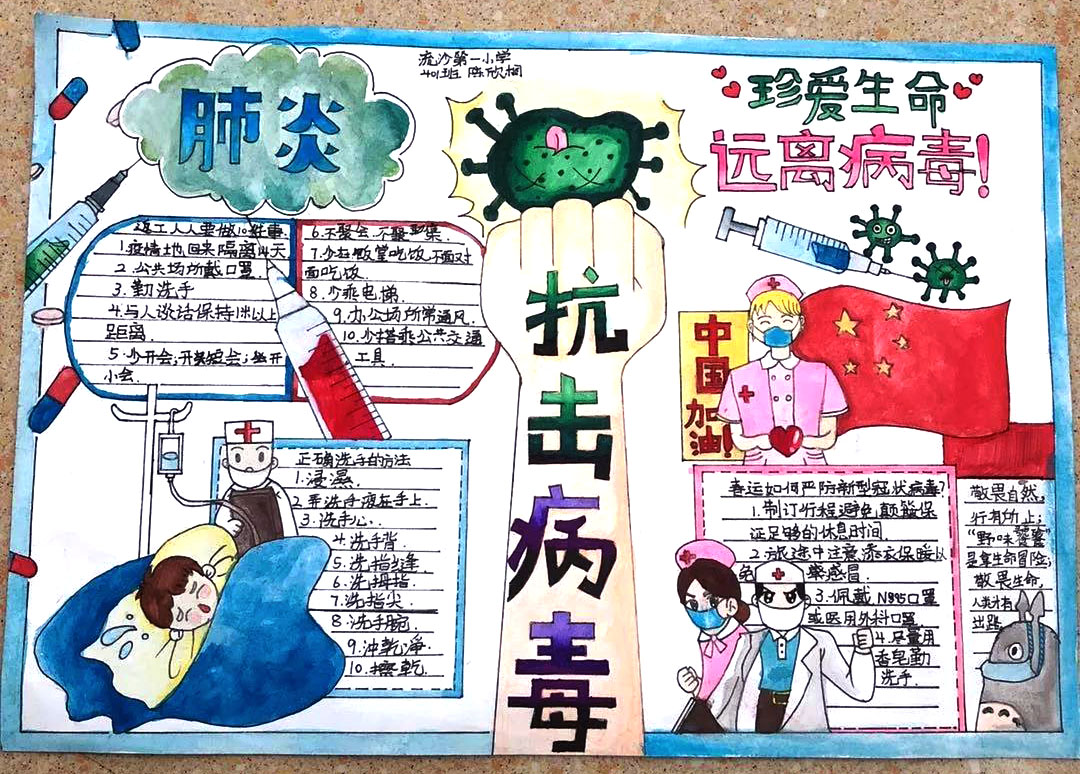 流沙第一小学
401班 陈欣桐
肺炎
返工人人要做10件事:
1.疫情地回来隔离14天
2.公共场所戴口罩.
3.勤洗手
4.与人谈话保持1米以上
距离.
5.少开会;开短会;
小会.
6.不聚会.不聚集.
7.少扎饭堂吃饭,不面对
面吃饭.
8.少乘电梯.
9.办公场所常通风.
10.少搭乘公共交通
工具.
正确洗手的方法
1.浸湿.
2.弄洗手液在手上.
3.洗手心..
4.洗手背.
5.洗指缝.
6.洗拇指.
7.洗指尖.
8.洗手腕.
9.冲乾净.
10.擦乾.
抗击病毒
珍爱生命
远离病毒!
中国加油!
春运如何严防新型冠状病毒?
1.制订行程避免颠簸保
证足够的休息时间.
2.旅途中注意添衣保暖以
免感冒.
3.佩戴N95口罩
或医用外科口罩
4.尽量用
香皂勤
洗手.
敬畏自然,
行有所止;
"野味
是拿生命冒险;
敬畏生命,
人类才有
出路.